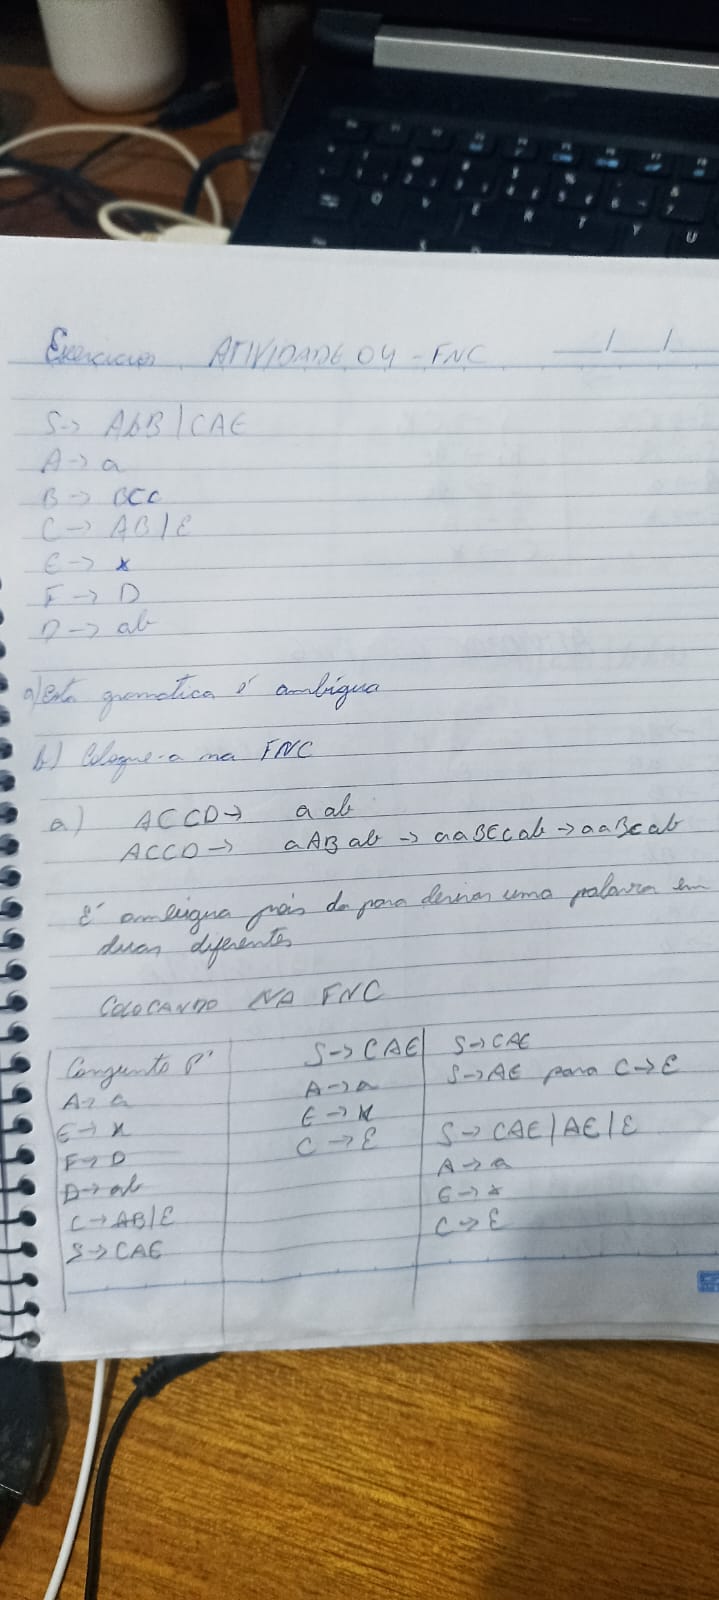 Exercícios ATIVIDADE 04 - FNC __/__/__
S-> AbB | CAE
A-> a
B-> BCC
C-> AB/ε
E-> x
F-> D
D-> ab
a) Esta gramatica é ambígua
b) Coloque-a na FNC
a) ACCD-> a ab
ACCD-> aABab -> aaBCCab -> aaBcab
É ambigua pois da para derivar uma palavra em
duas diferentes
COLOCANDO NA FNC
Conjunto P'
A-> a
E-> x
F-> D
D-> ab
C-> AB/ε
S-> CAE
S-> CAE
A-> a
E-> x
C-> ε
S-> CAE
S-> AE para C-> ε
S-> CAE/AE/ε
A-> a
E-> x
C-> ε